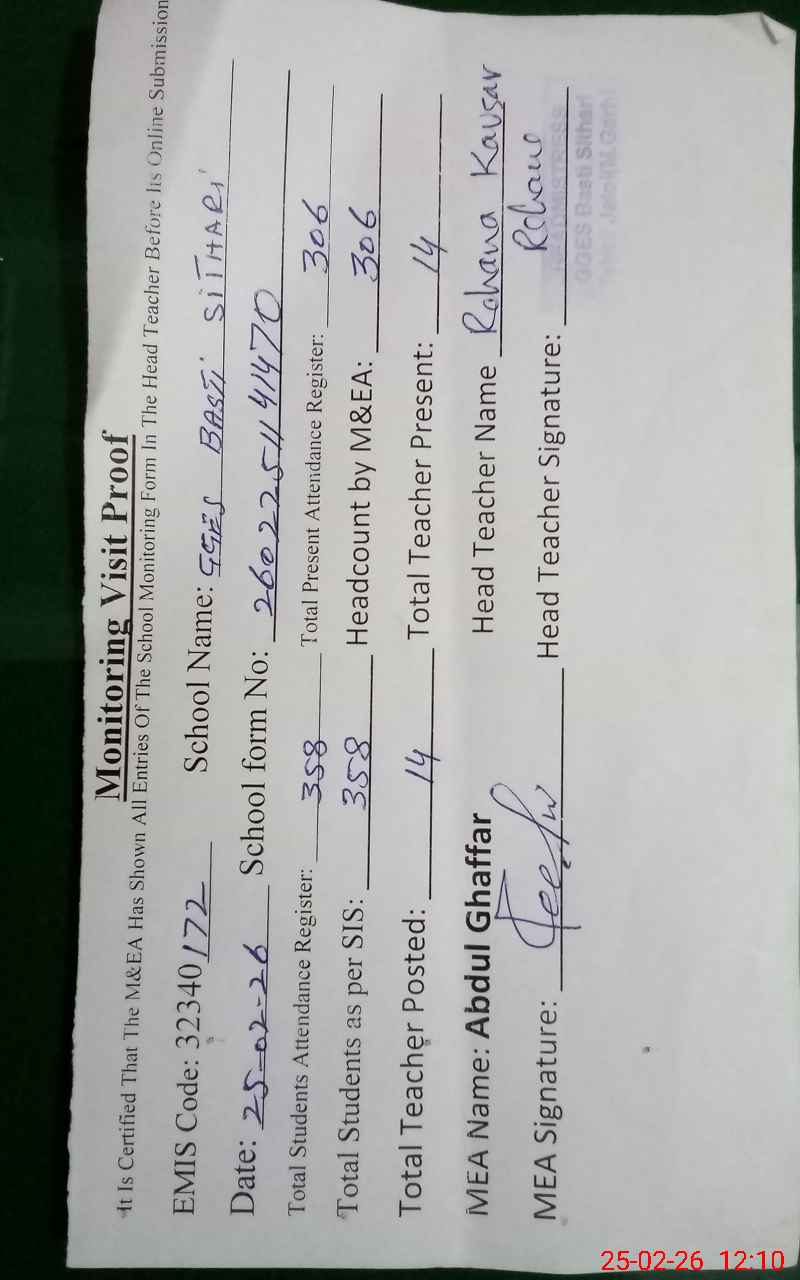 Monitoring Visit Proof
It Is Certified That The M&EA Has Shown All Entries Of The School Monitoring Form In The Head Teacher Before Its Online Submission
EMIS Code: 32340172 School Name: GGES BASTI SITHARI
Date: 25-02-26 School form No: 2602251141470
Total Students Attendance Register: 358 Total Present Attendance Register: 306
Total Students as per SIS: 358 Headcount by M&EA: 306
Total Teacher Posted: 14 Total Teacher Present: 14
MEA Name: Abdul Ghaffar Head Teacher Name Rohana Kausar
MEA Signature: Head Teacher Signature: Rohane
HEADMISTRESS
GGES Basti Sithari
25-02-26 12:10